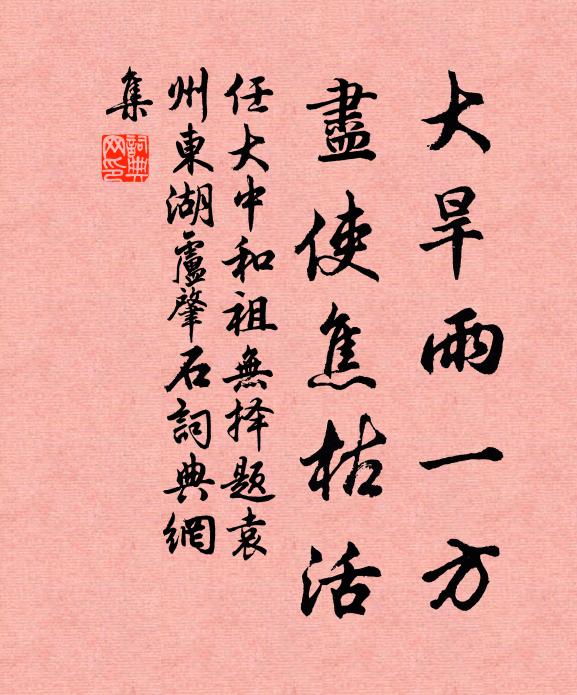 大旱雨一方
盡使焦枯活
任大中和祖無择题袁
州東湖盧肇石詞典網
集
詞典网印